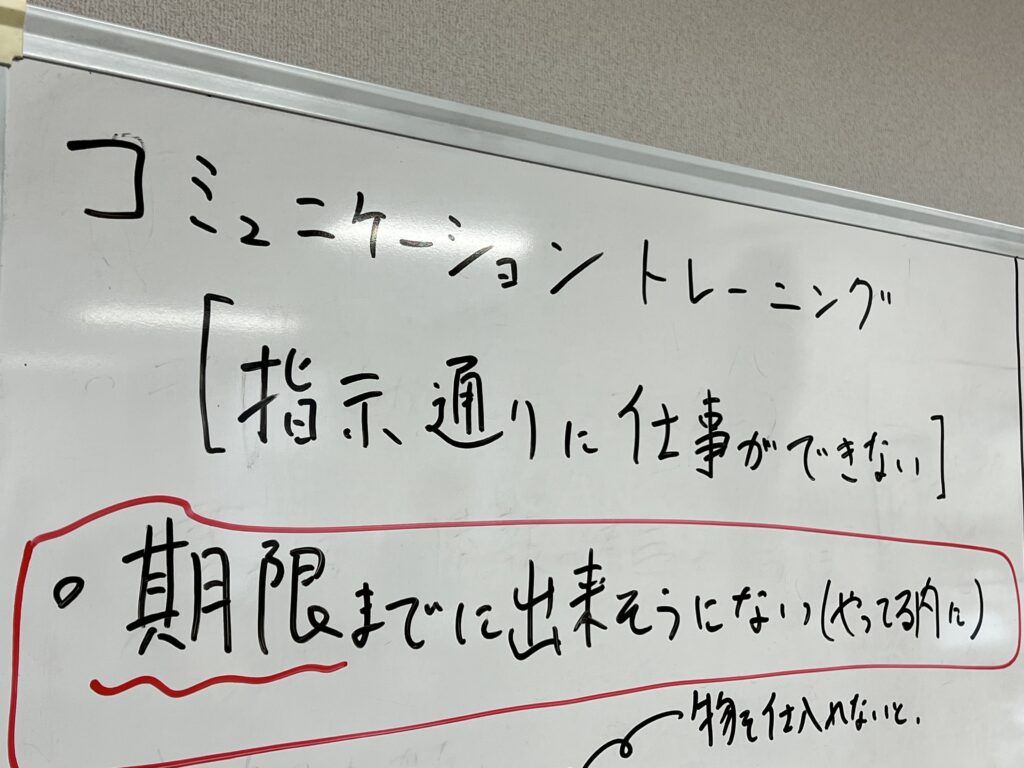 コミュニケーション トレーニング
[指示通りに仕事ができない]
○期限までに出来そうにない(やってる内に)
物を仕入れないと.